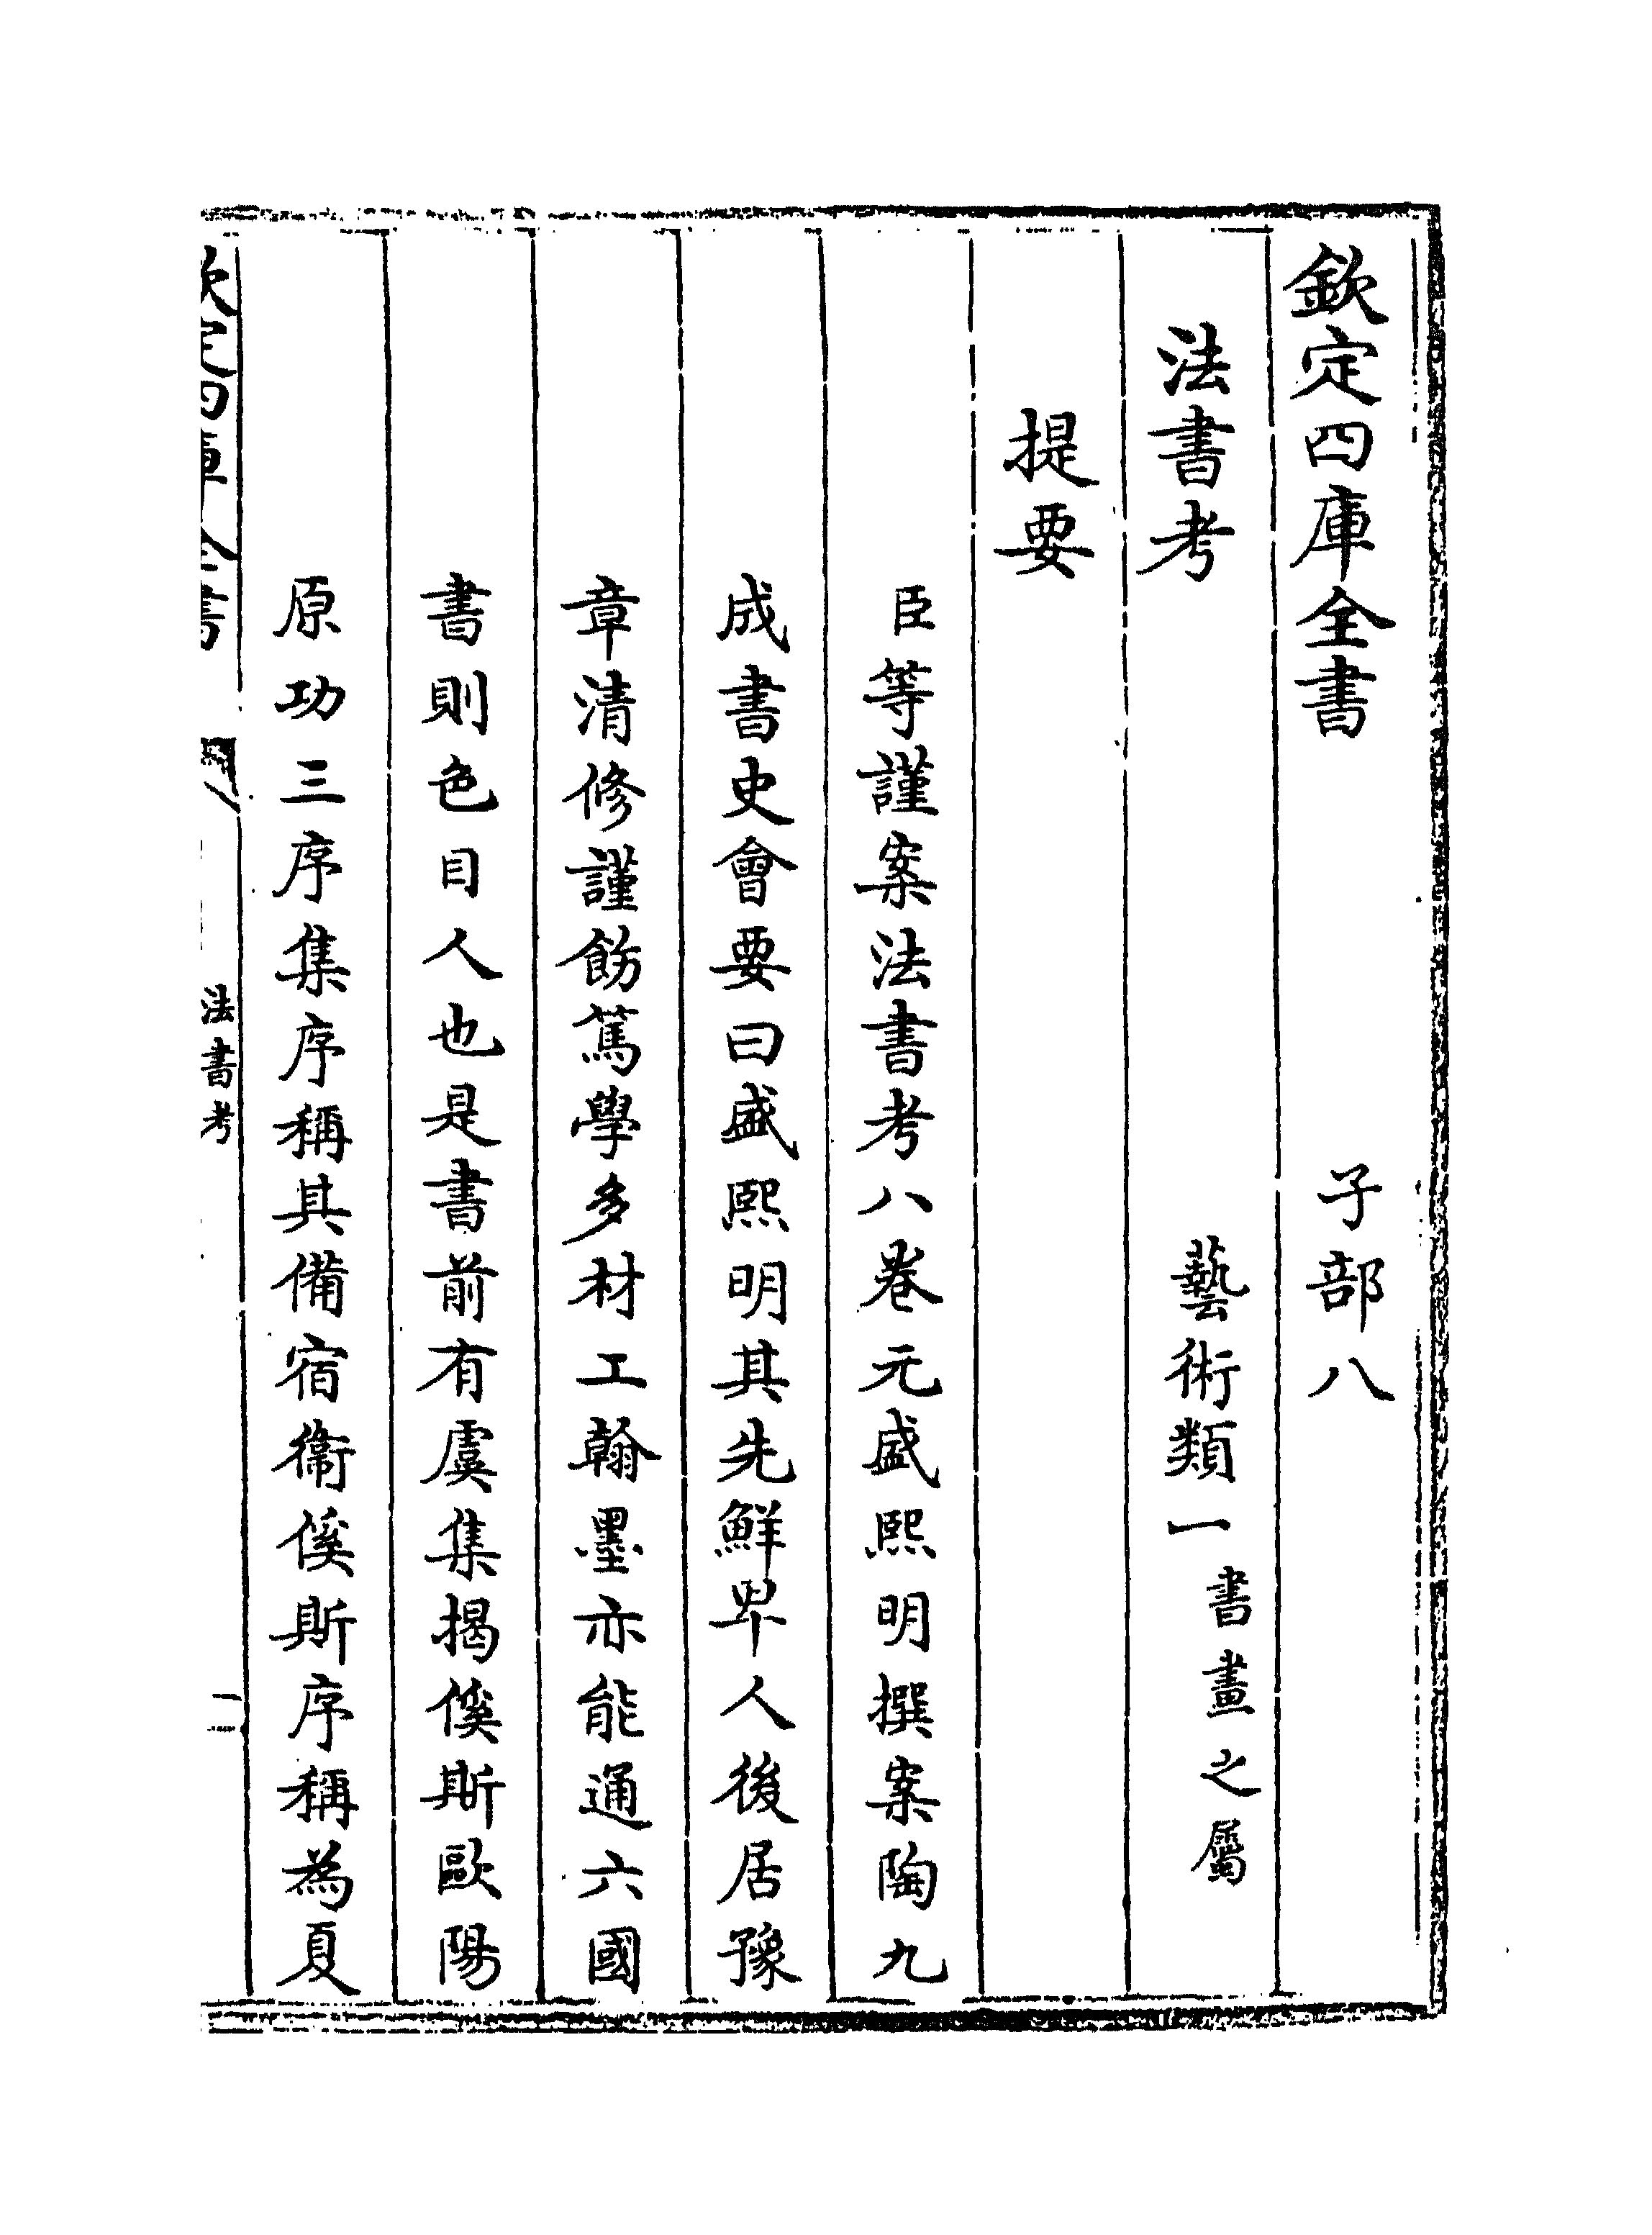 欽定四庫全書　子部八
法書考　藝術類一書畫之屬
提要
臣等謹案法書考八卷元盛熙明撰案陶九
成書史會要曰盛熙明其先鮮卑人後居豫
章清修謹飭篤學多材工翰墨亦能通六國
書則色目人也是書前有虞集揭傒斯歐陽
原功三序集序稱其備宿衞傒斯序稱為夏
欽定四庫全書　法書考　二